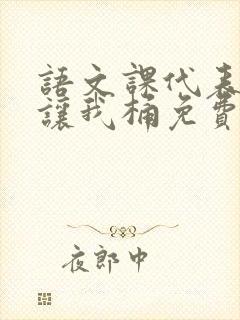 語文課代表
讓我桶免費
夜郎中